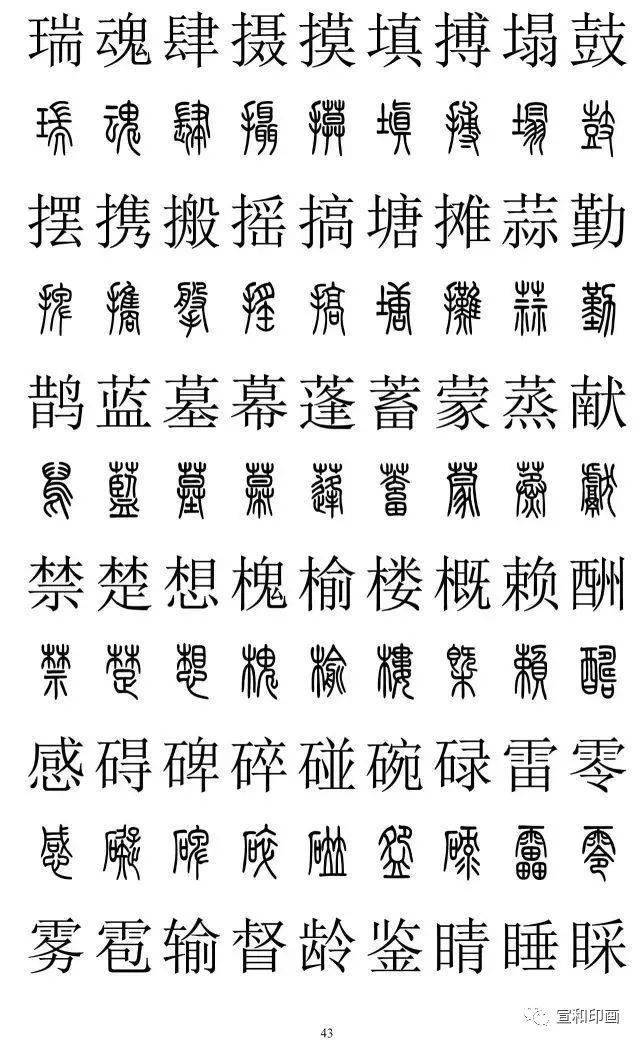 瑞魂肆摄摸填搏塌鼓
瑞魂肆攝摸填搏塌鼓
摆携搬摇搞塘摊蒜勤
搾攜搫搖搞塘攤蒜勤
鹊蓝墓幕蓬蓄蒙蒸献
舄藍墓幕蓬蓄蒙蒸獻
禁楚想槐榆楼概赖酬
禁楚想槐榆樓槩賴醻
感碍碑碎碰碗碌雷零
感礙碑碎䃶盌碌靁零
雾雹输督龄鉴睛睡睬
宣和印画
43